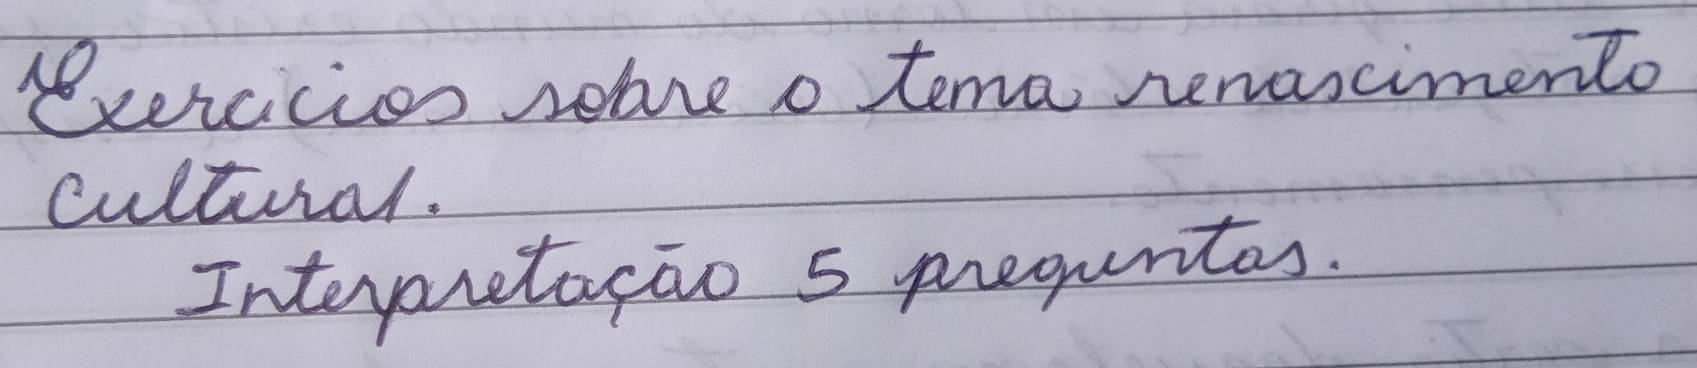 Exercicios sobre o tema renascimento
cultural.
Interpretação 5 preguntas.